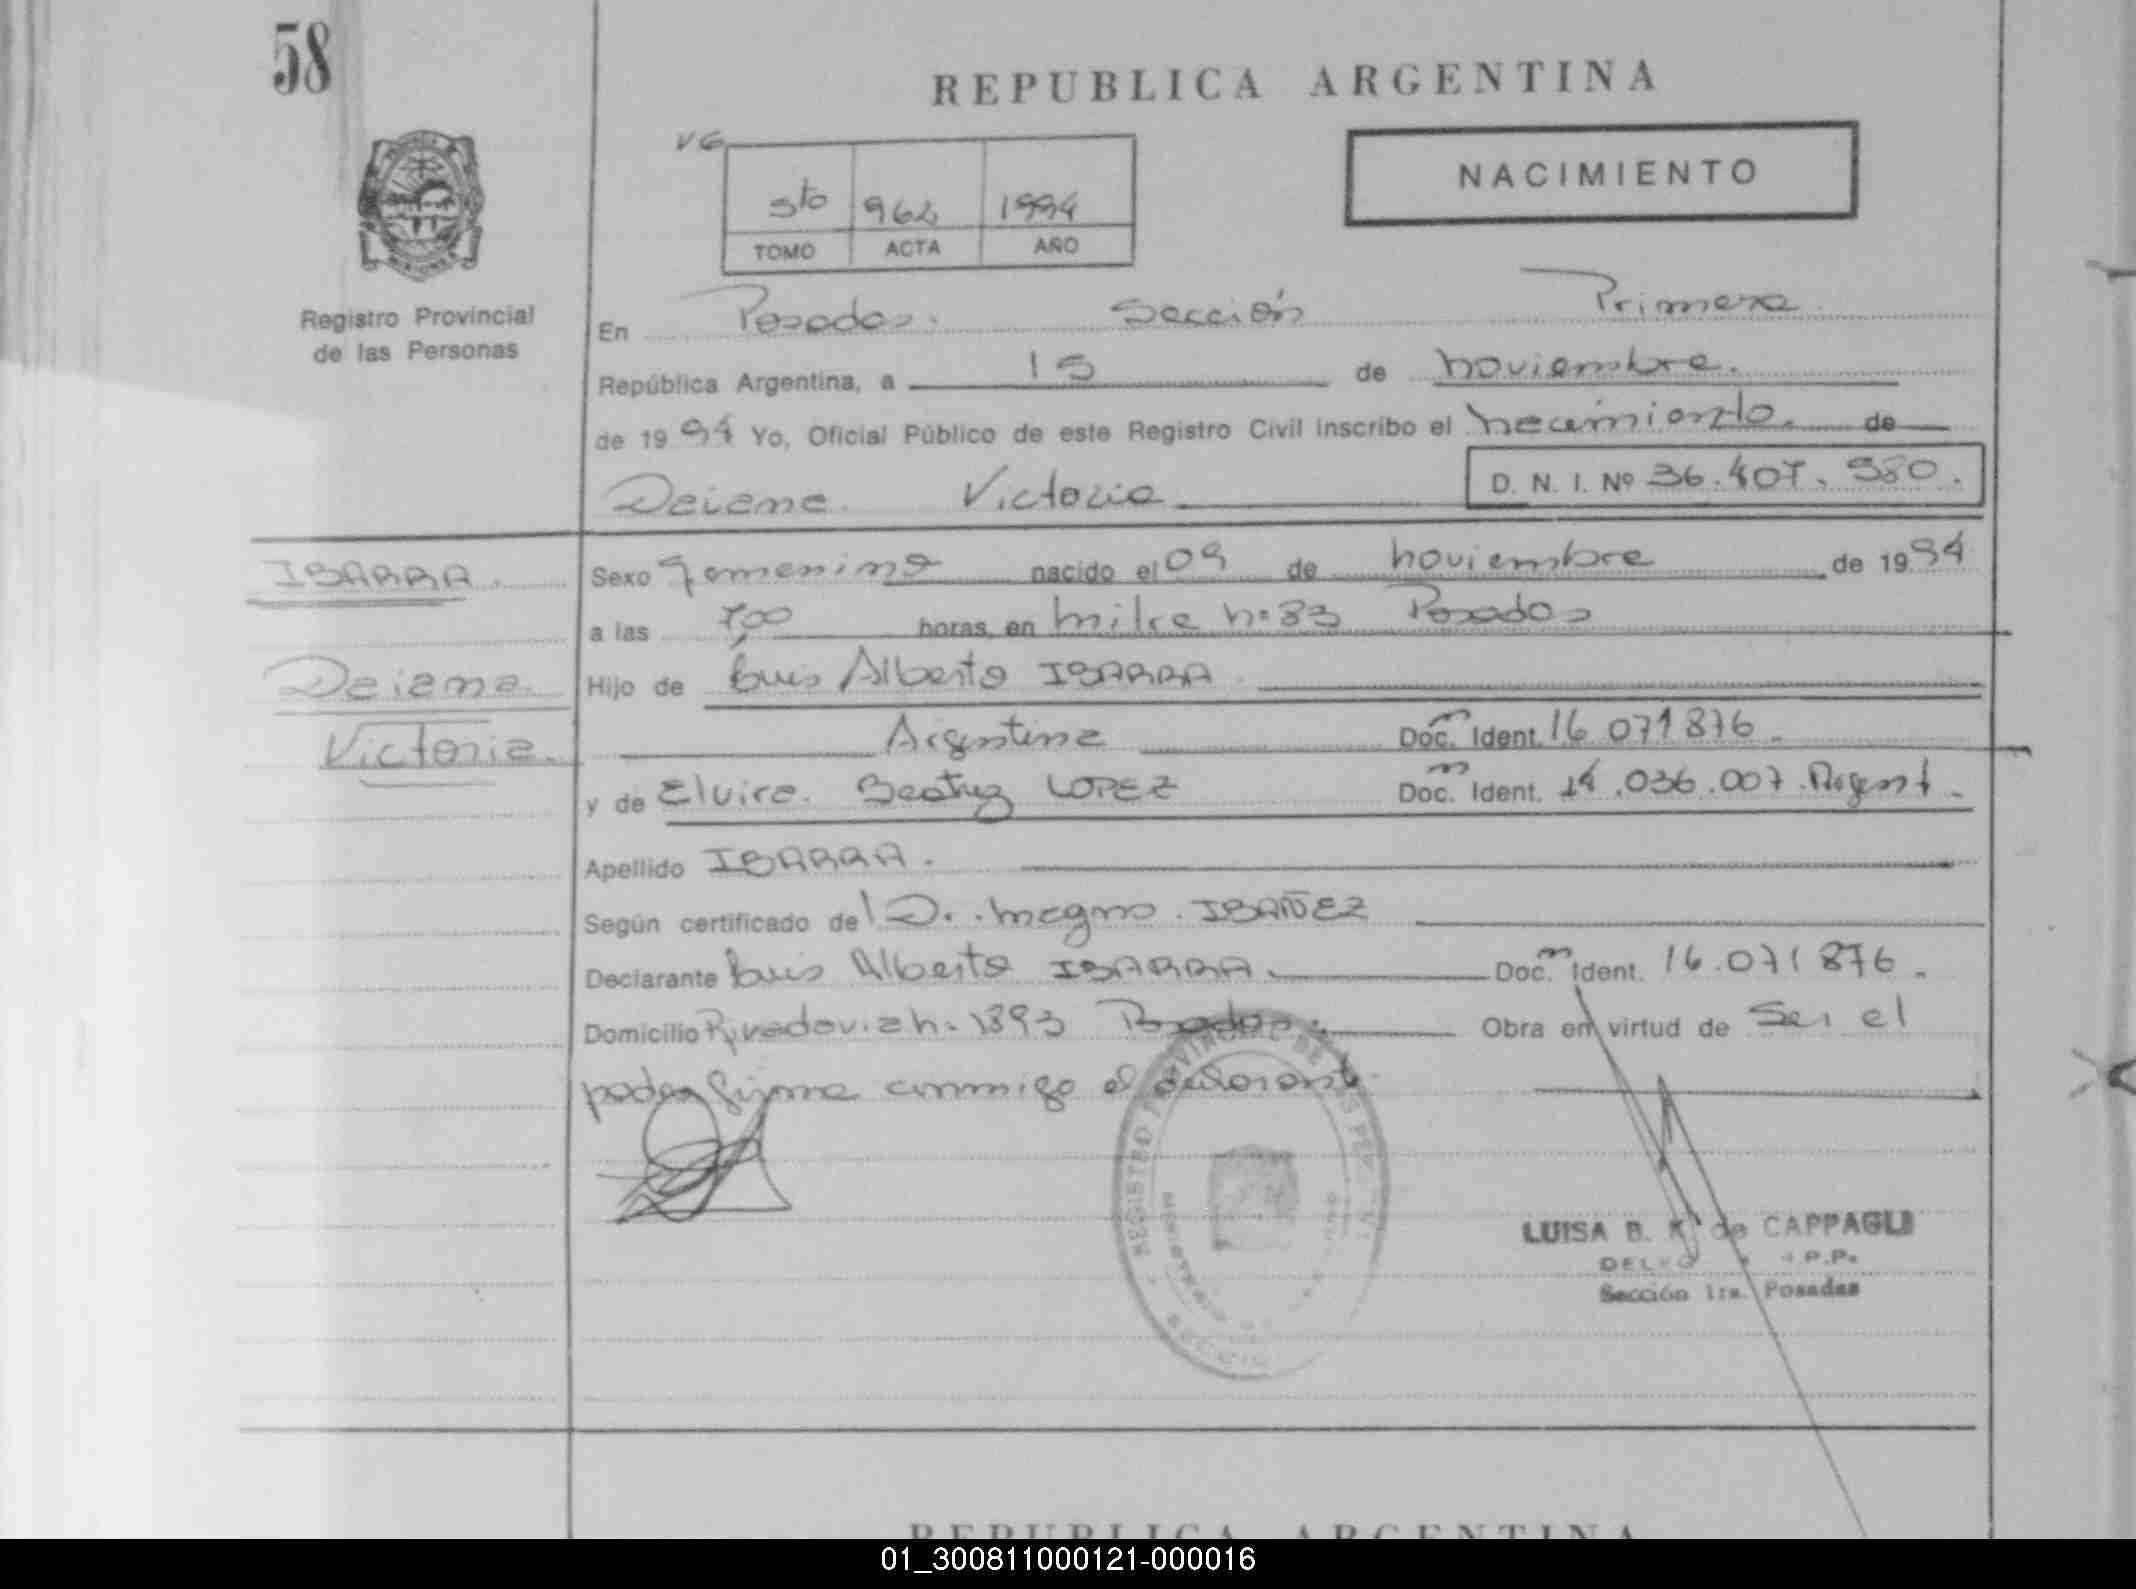 58
REPUBLICA ARGENTINA
VG
5to 962 1994
TOMO ACTA AÑO
NACIMIENTO
Registro Provincial
de las Personas
En Posadas. Sección Primera
República Argentina, a 15 de noviembre.
de 1994 Yo, Oficial Público de este Registro Civil inscribo el nacimiento. de
Daiana Victoria D. N. I. Nº 36.407.980.
IBARRA. Sexo femenino nacido el 09 de noviembre de 1994
a las 7,00 horas, en mitre nº 83 Posadas
Daiana Hijo de Luis Alberto IBARRA
Victoria. Argentina Doc. Ident. 16 071876
y de Elvira Beatriz LOPEZ Doc. Ident. 14.036.007 Argent.
Apellido IBARRA.
Según certificado del D. magno IBAÑEZ
Declarante Luis Alberto IBARRA. Doc. Ident. 16.071876.
Domicilio Rivadavia n. 1893 Posadas Obra en virtud de Ser el
padre firma conmigo el declarante.
REGISTRO PROVINCIAL DE LAS PER
MINISTERIO
LUISA B. K. de CAPPAGLI
Sección 1ra. Posadas
REPUBLICA ARGENTINA
01_300811000121-000016